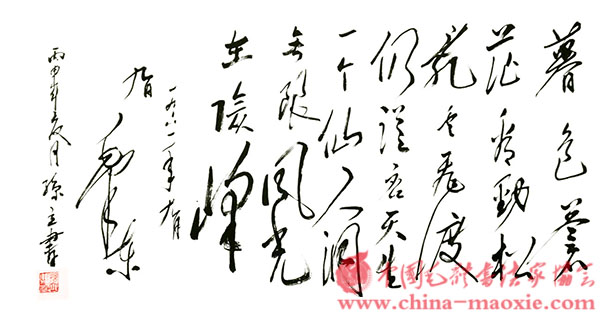 暮色蒼
茫看勁松
亂雲飛渡
仍從容天生
一个仙人洞
无限風光
在險峰
一九六一年九月
九日 毛泽东
丙申年夏月 書
中国毛体书法家协会
www.china-maoxie.com